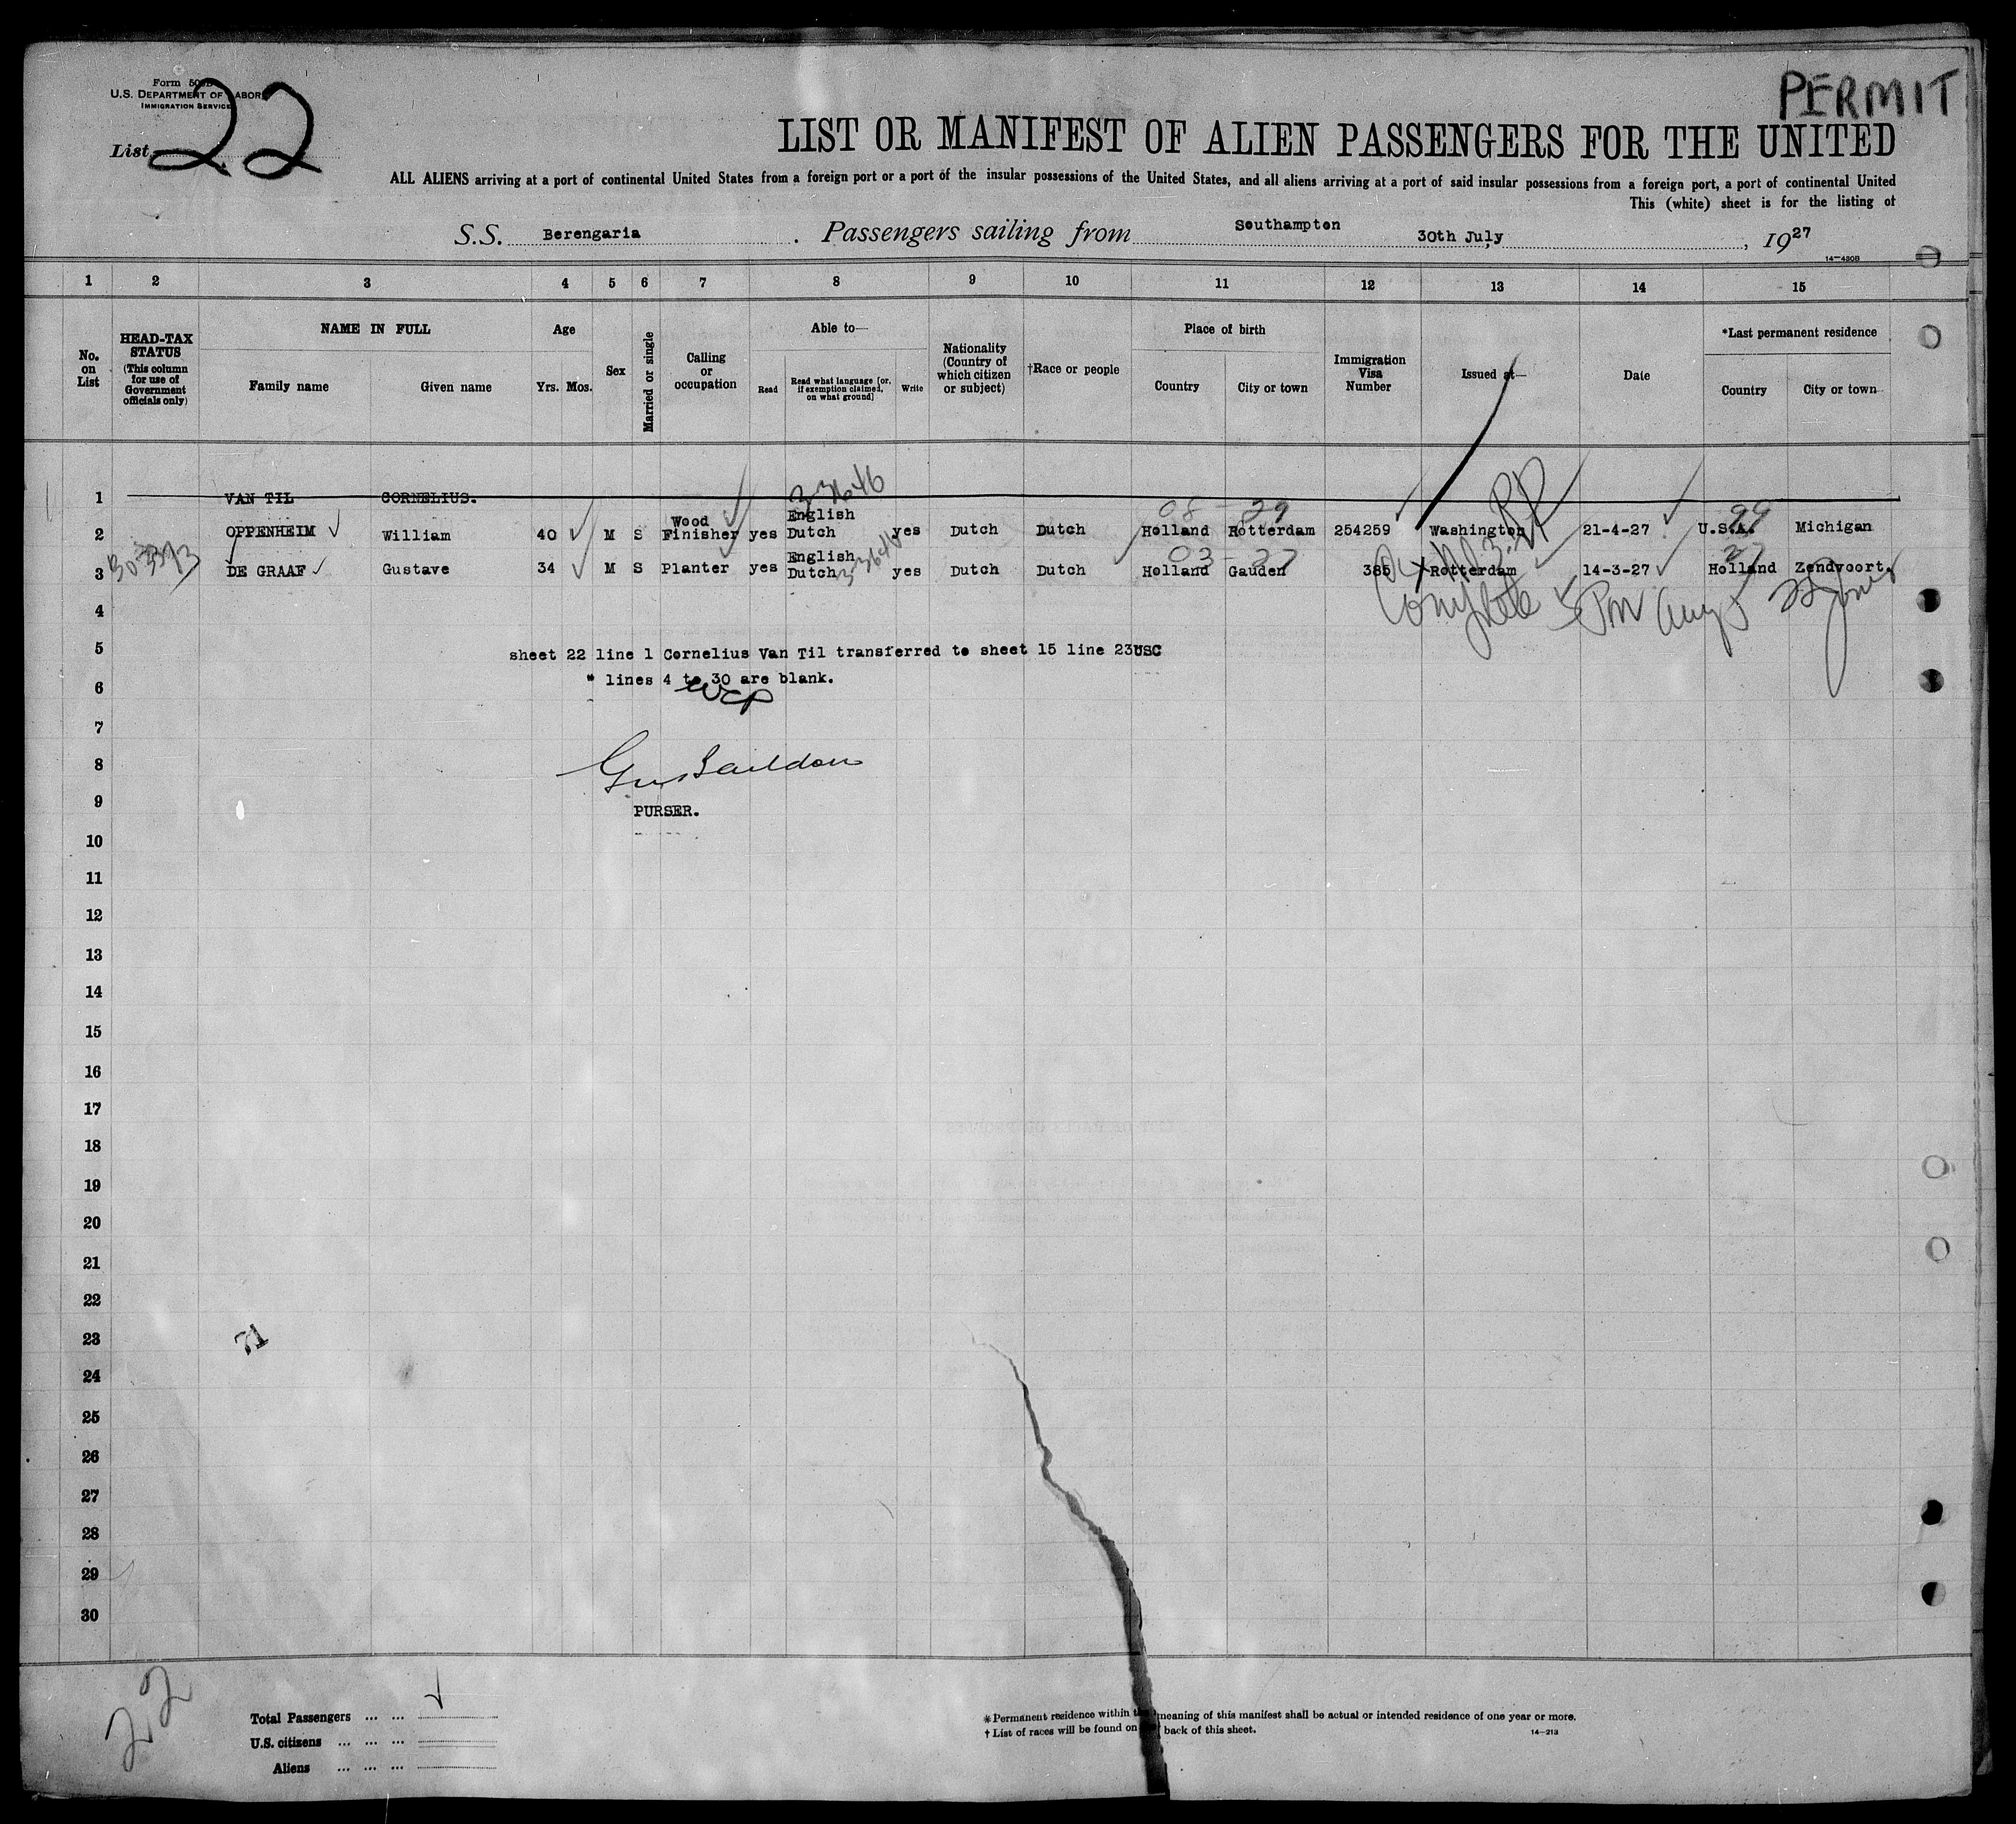 PERMIT
Form 500B
U.S. DEPARTMENT OF LABOR
IMMIGRATION SERVICE
List 22
LIST OR MANIFEST OF ALIEN PASSENGERS FOR THE UNITED
ALL ALIENS arriving at a port of continental United States from a foreign port or a port of the insular possessions of the United States, and all aliens arriving at a port of said insular possessions from a foreign port, a port of continental United
This (white) sheet is for the listing of
S.S. Berengaria . Passengers sailing from Southampton 30th July , 1927
14-430B
1 2 3 4 5 6 7 8 9 10 11 12 13 14 15
No. on List
HEAD-TAX STATUS (This column for use of Government officials only)
NAME IN FULL
Family name Given name
Age
Yrs. Mos.
Sex
Married or single
Calling or occupation
Able to—
Read Read what language [or, if exemption claimed, on what ground] Write
Nationality (Country of which citizen or subject)
†Race or people
Place of birth
Country City or town
Immigration Visa Number
Issued at—
Date
*Last permanent residence
Country City or town
1 VAN TIL CORNELIUS. 3-3646
2 OPPENHEIM William 40 M S Wood Finisher yes English Dutch yes Dutch Dutch Holland Rotterdam 254259 Washington RP 21-4-27 U.S.A. 99 Michigan
3 DE GRAAF Gustave 34 M S Planter yes English Dutch yes Dutch Dutch Holland Gauden 385 Rotterdam 14-3-27 Holland Zendvoort.
4
Complete
5 sheet 22 line 1 Cornelius Van Til transferred to sheet 15 line 23USC
6 " lines 4 to 30 are blank.
7
8
9 PURSER.
10
11
12
13
14
15
16
17
18
19
20
21
22
23 71
24
25
26
27
28
29
30
22
Total Passengers ... ...
U.S. citizens ... ... ...
Aliens ... ... ...
*Permanent residence within meaning of this manifest shall be actual or intended residence of one year or more.
† List of races will be found on back of this sheet.
14-213